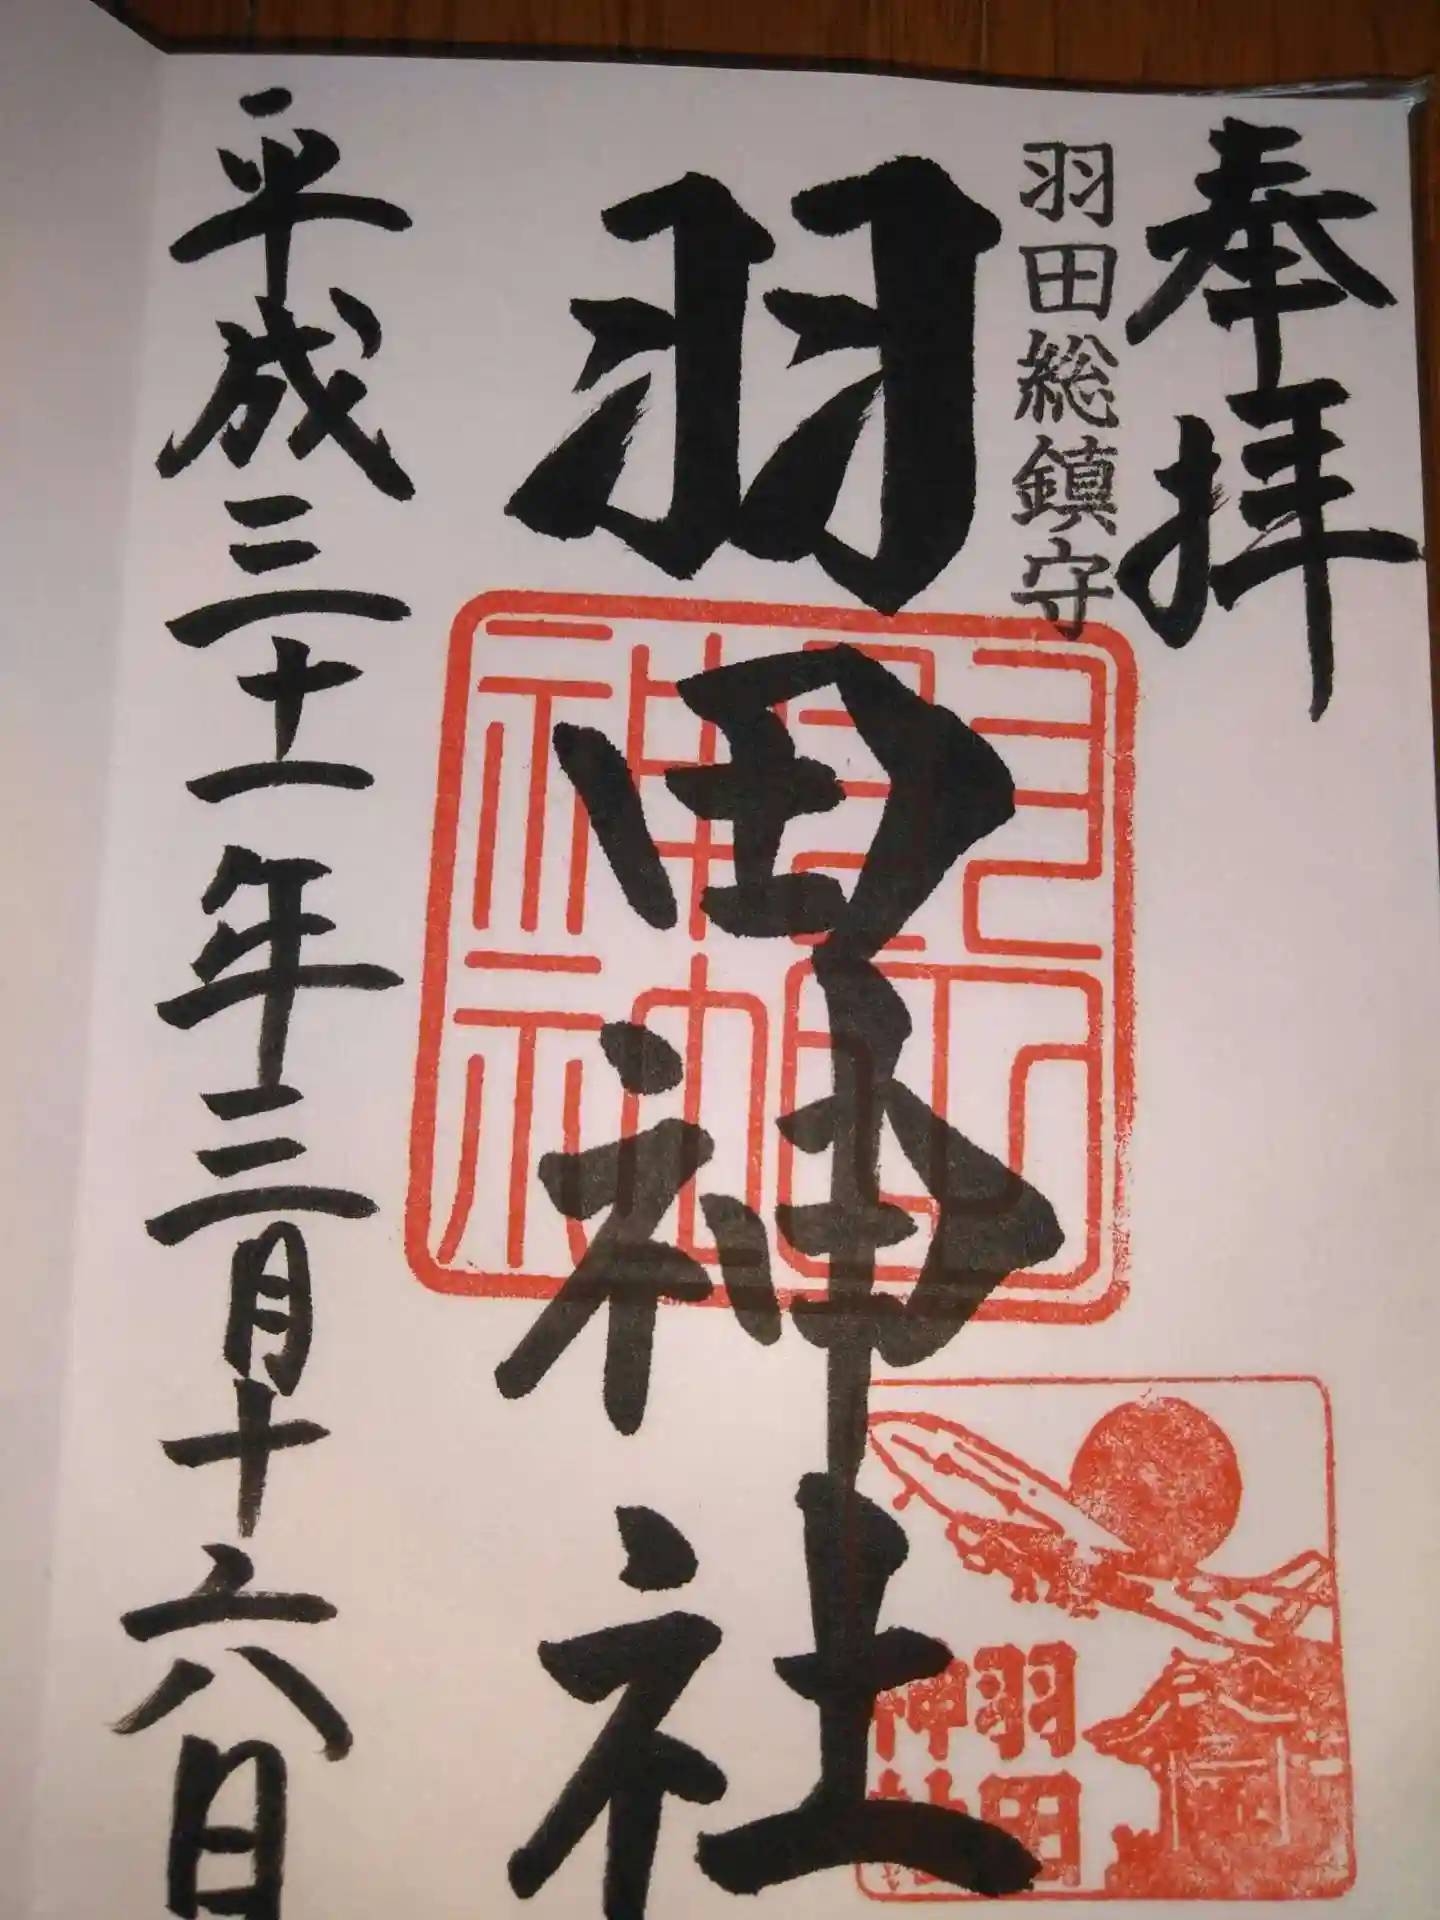 奉拝
羽田総鎮守
羽田神社
平成三十一年三月十六日
羽田
神社